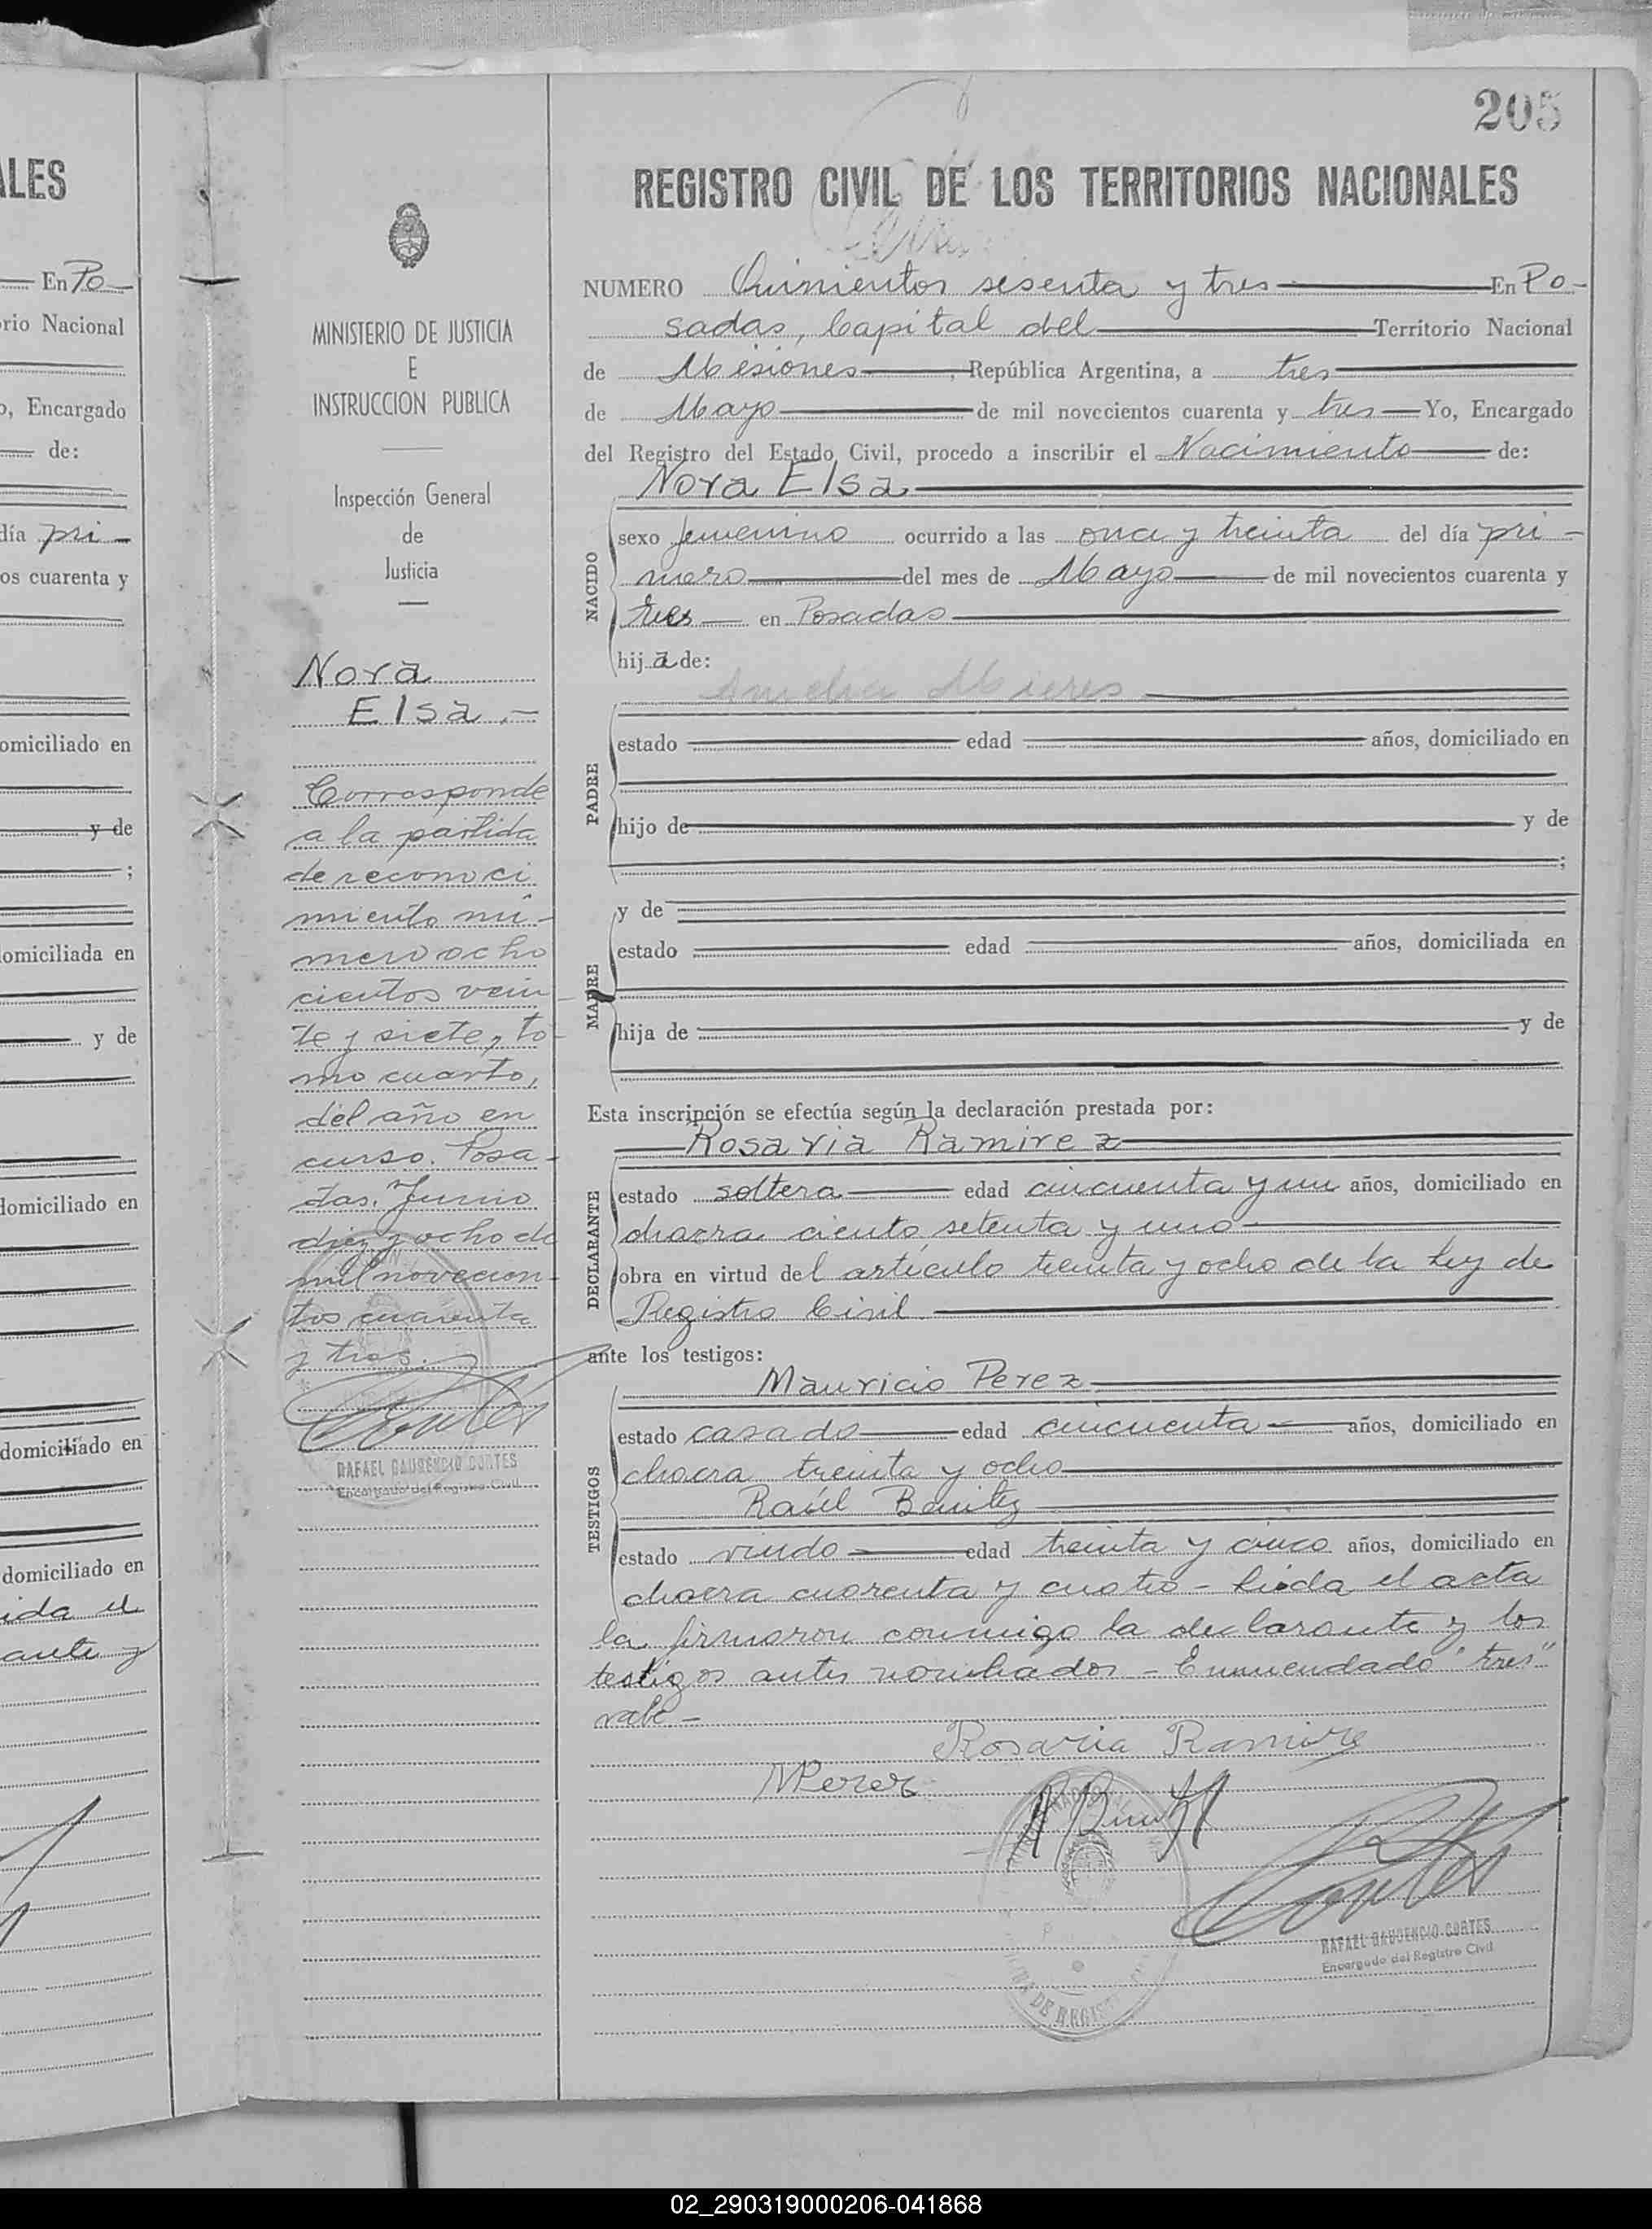 205
REGISTRO CIVIL DE LOS TERRITORIOS NACIONALES
NUMERO Quinientos sesenta y tres En Po-
sadas, Capital del Territorio Nacional
de Misiones, República Argentina, a tres
de Mayo de mil novecientos cuarenta y tres Yo, Encargado
del Registro del Estado Civil, procedo a inscribir el Nacimiento de:
Nora Elsa
NACIDO
sexo femenino ocurrido a las once y treinta del día pri-
mero del mes de Mayo de mil novecientos cuarenta y
tres en Posadas
hija de:
Amelia Mieres
PADRE
estado edad años, domiciliado en
hijo de y de
;
y de
MADRE
estado edad años, domiciliada en
hija de y de
Esta inscripción se efectúa según la declaración prestada por:
Rosaria Ramirez
DECLARANTE
estado soltera edad cincuenta y un años, domiciliado en
chacra ciento setenta y uno
obra en virtud del artículo treinta y ocho de la ley de
Registro Civil.
ante los testigos:
TESTIGOS
Mauricio Perez
estado casado edad cincuenta años, domiciliado en
chacra treinta y ocho
Raúl Benitez
estado viudo edad treinta y cinco años, domiciliado en
chacra cuarenta y cuatro - Leída el acta
la firmaron conmigo la declarante y los
testigos antes nombrados - Enmendado "tres"
vale -
Rosaria Ramire
MPerez
RAFAEL GAUDENCIO CORTES
Encargado del Registro Civil
MINISTERIO DE JUSTICIA
E
INSTRUCCION PUBLICA
Inspección General
de
Justicia
Nora
Elsa.-
Corresponde
a la partida
de reconoci
miento nú-
mero ocho
cientos vein
te y siete, to-
mo cuarto,
del año en
curso. Posa-
das, Junio
diez y ocho de
mil novecien-
tos cuarenta
y tres.
RAFAEL GAUDENCIO CORTES
Encargado del Registro Civil
ALES
En Po-
rio Nacional
o, Encargado
de:
día pri-
os cuarenta y
omiciliado en
y de
;
omiciliada en
y de
domiciliado en
domiciliado en
domiciliado en
ida el
ante y
02_290319000206-041868